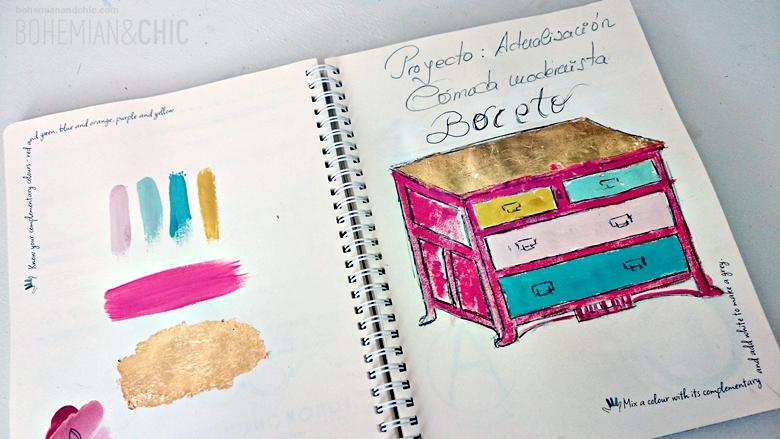 bohemianandchic.com
BOHEMIAN&CHIC
Know your complementary colours - red and green, blue and orange, purple and yellow.
Proyecto: Actualización
Cómoda modernista
Boceto
Mix a colour with its complementary and add white to make a grey.